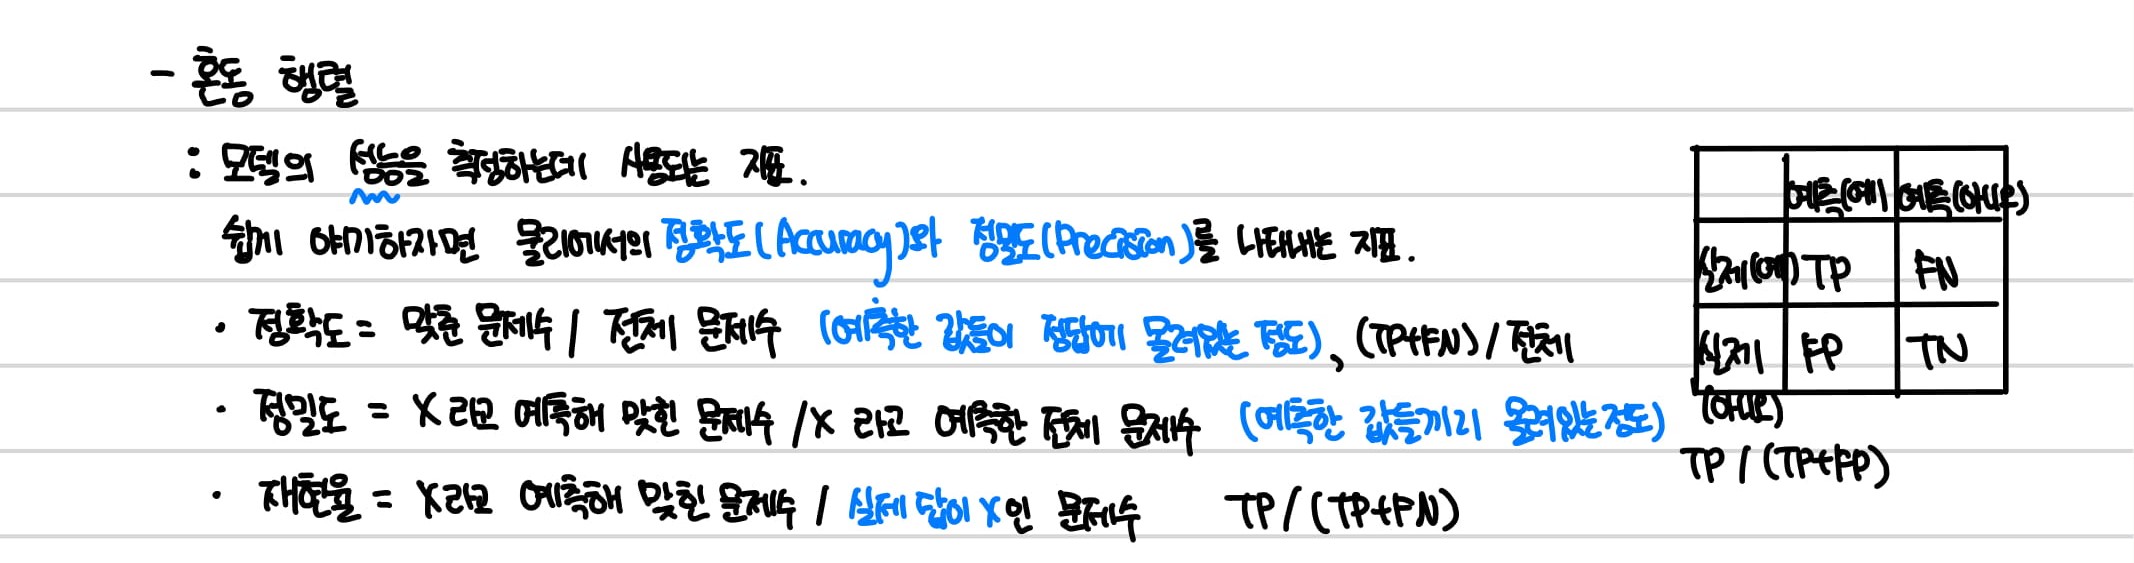 - 혼동 행렬
: 모델의 성능을 측정하는데 사용되는 지표.
쉽게 야기하자면 물리에서의 정확도(Accuracy)와 정밀도(Precision)를 나타내는 지표.
· 정확도 = 맞춘 문제수 / 전체 문제수 (예측한 값들이 정답에 몰려있는 정도), (TP+FN) / 전체
· 정밀도 = X 라고 예측해 맞힌 문제수 / X 라고 예측한 전체 문제수 (예측한 값들끼리 몰려있는 정도)
TP / (TP+FP)
· 재현율 = X라고 예측해 맞힌 문제수 / 실제 답이 X인 문제수 TP / (TP+FN)
예측(예) 예측(아니오)
실제(예) TP FN
실제(아니오) FP TN